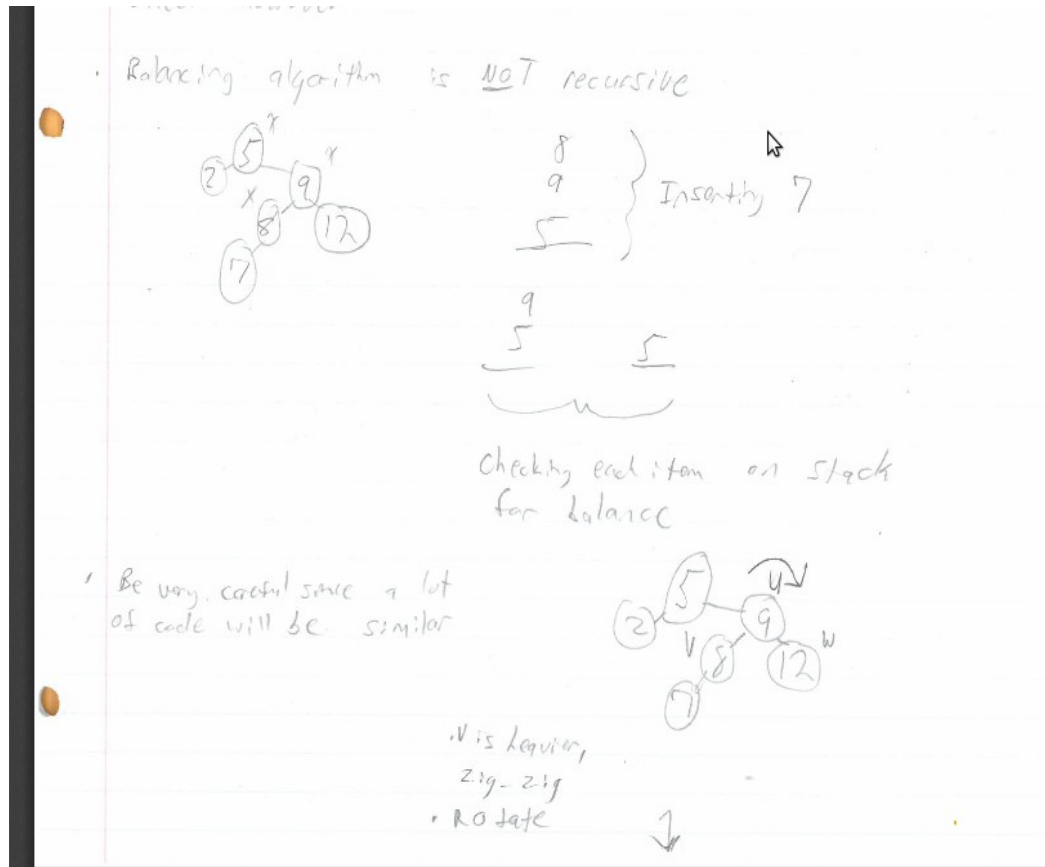 · Balancing algorithm is NOT recursive
x
5
x
2
9
x
8
12
7
8
9
5
Inserting 7
9
5
5
Checking each item on stack
for balance
· Be very careful since a lot
of code will be similar
5
u
2
9
v
8
w
12
7
· V is heavier,
zig-zig
· Rotate